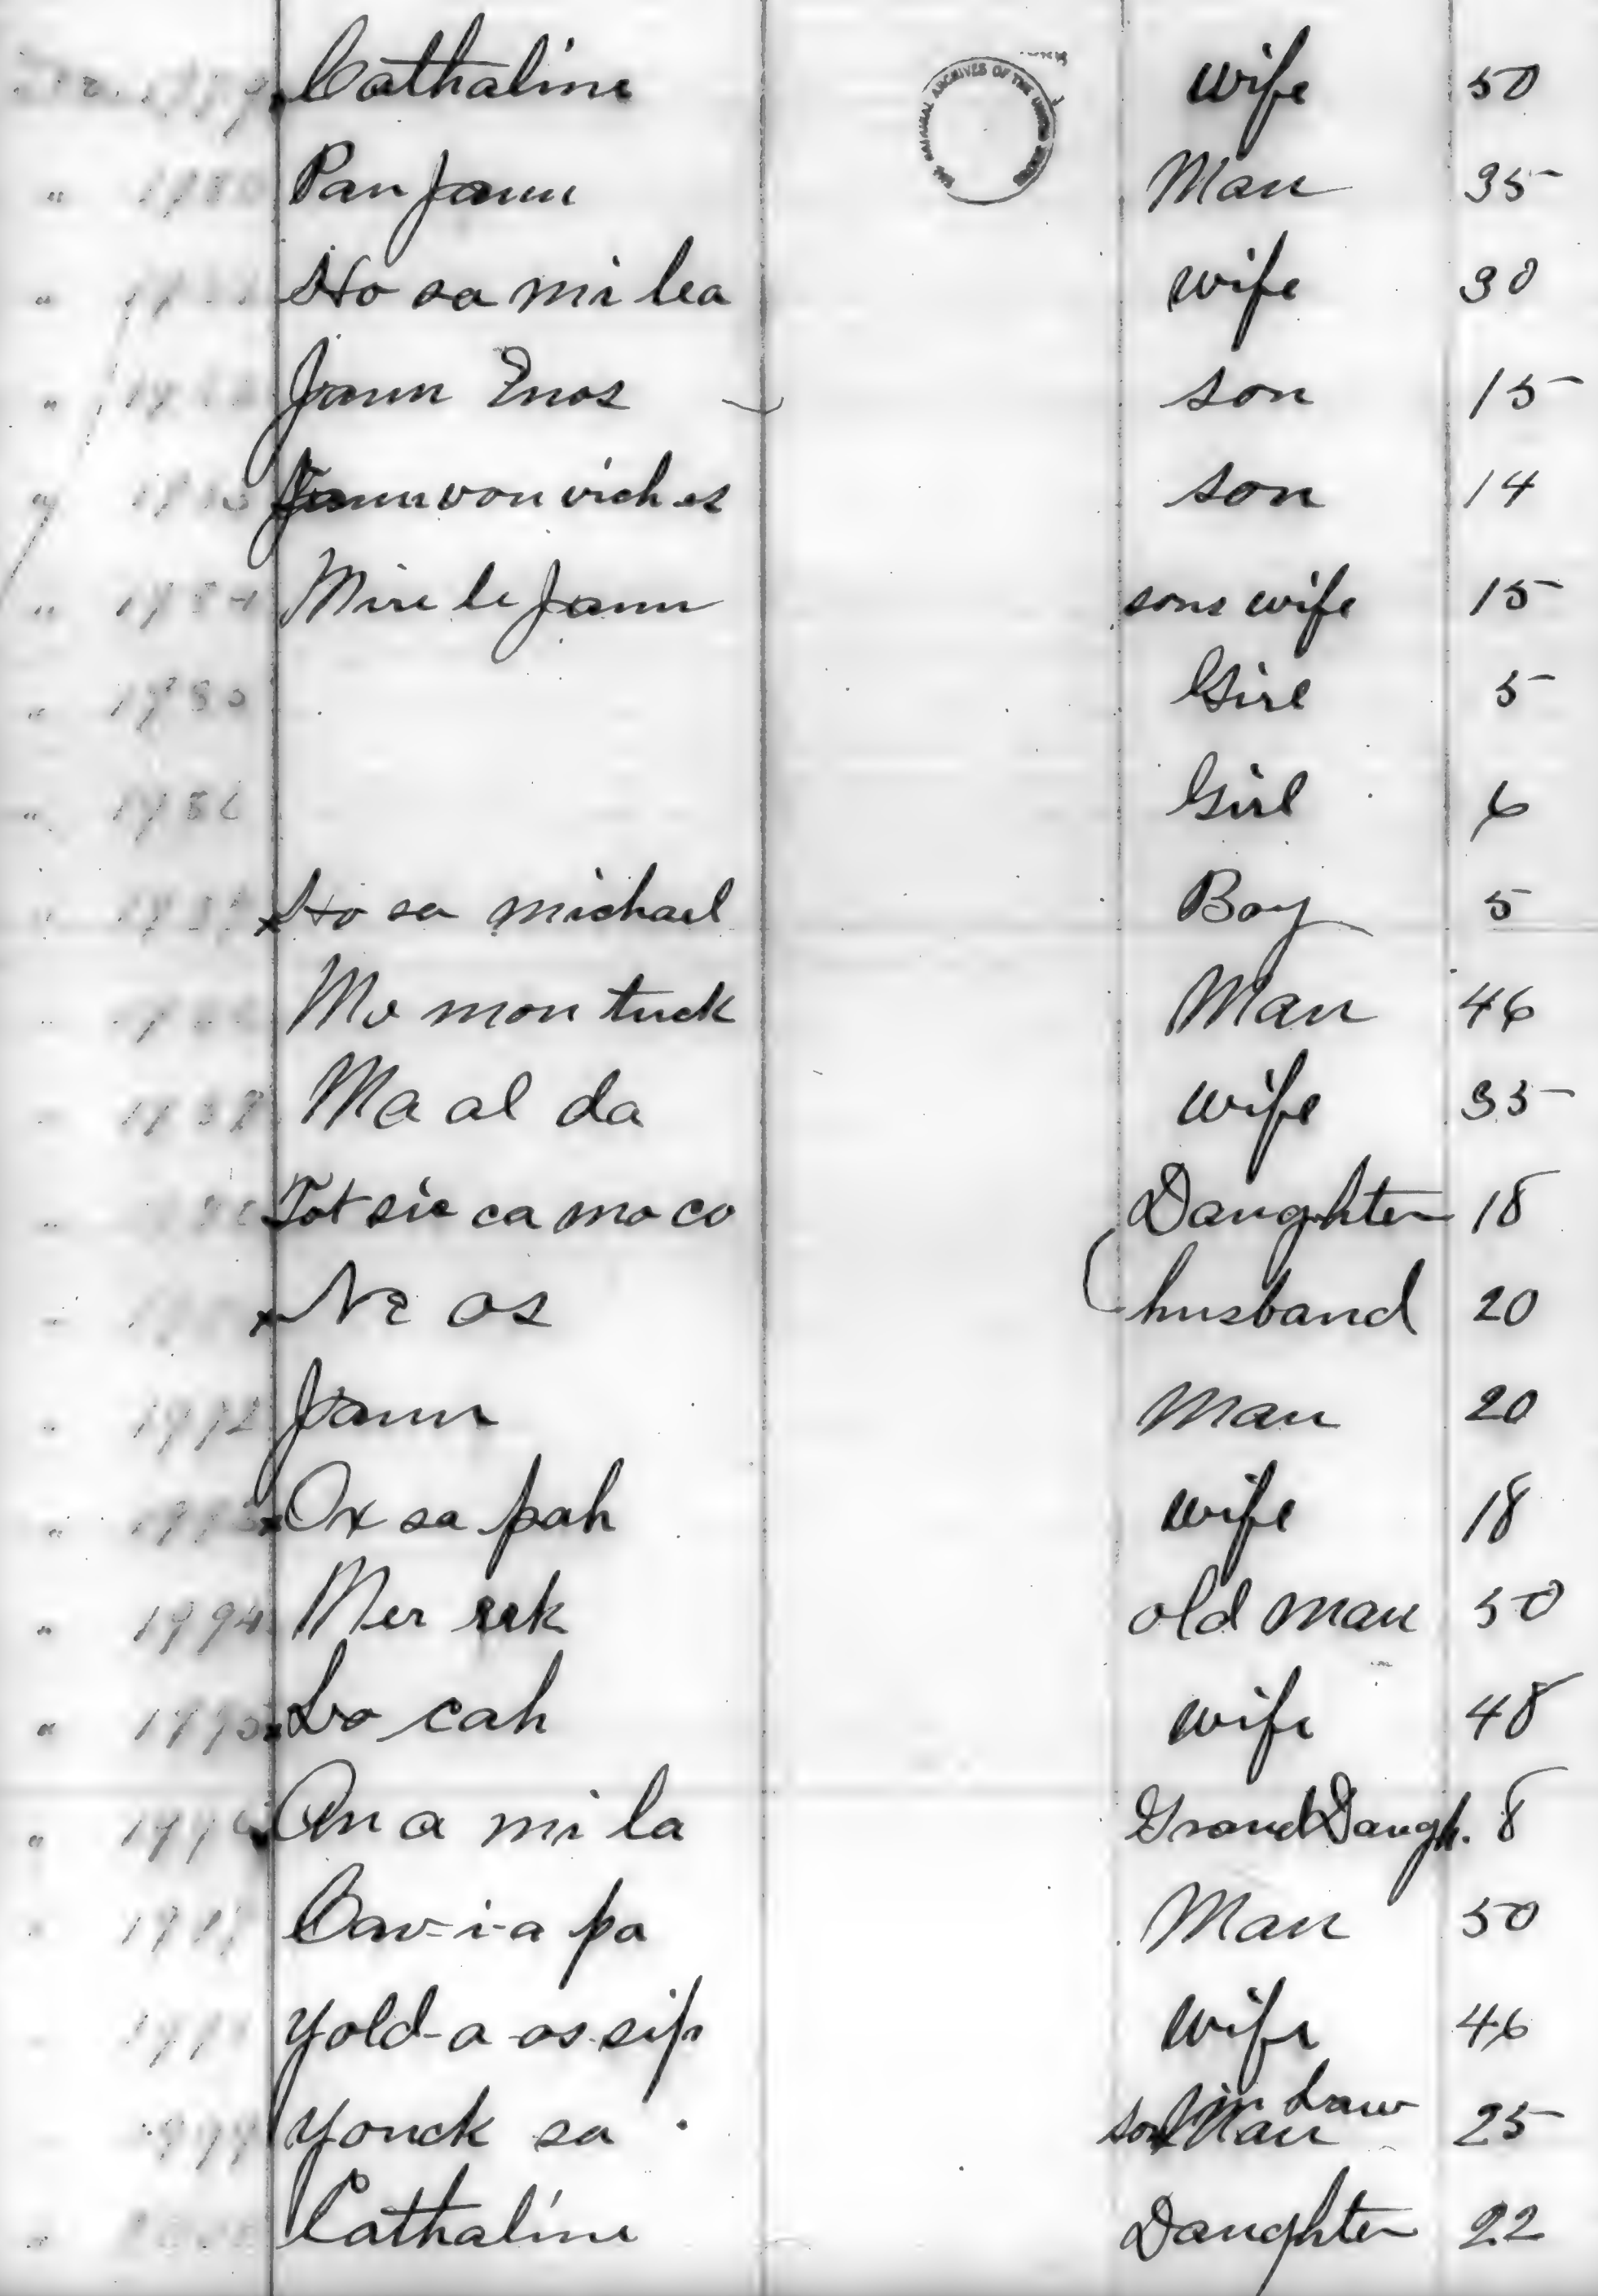 Cathaline wife 50
THE NATIONAL ARCHIVES OF THE UNITED STATES
" Pan Jaun Man 35
" Ho sa mi lea wife 30
" Jaun Enos son 15
" Jaun von viches son 14
" 1984 Mire le Jaun sons wife 15
" 1985 Girl 5
" 1986 Girl 6
" Ho sa michael Boy 5
" Mo mon tuck Man 46
" 1989 Ma al da wife 35
" Tot sie ca mo co Daughter 18
" x Ne os husband 20
" 1992 Jaun Man 20
" 1993 x Ox sa pah wife 18
" 1994 Mer sek old man 50
" 1995 x Lo cah wife 48
" 1996 An a mi la Grand Daugh. 8
" 1997 Cav-i-a pa Man 50
" 1998 Yold-a-os sip wife 46
1999 Yonck sa son in Law Man 25
" Cathaline Daughter 22